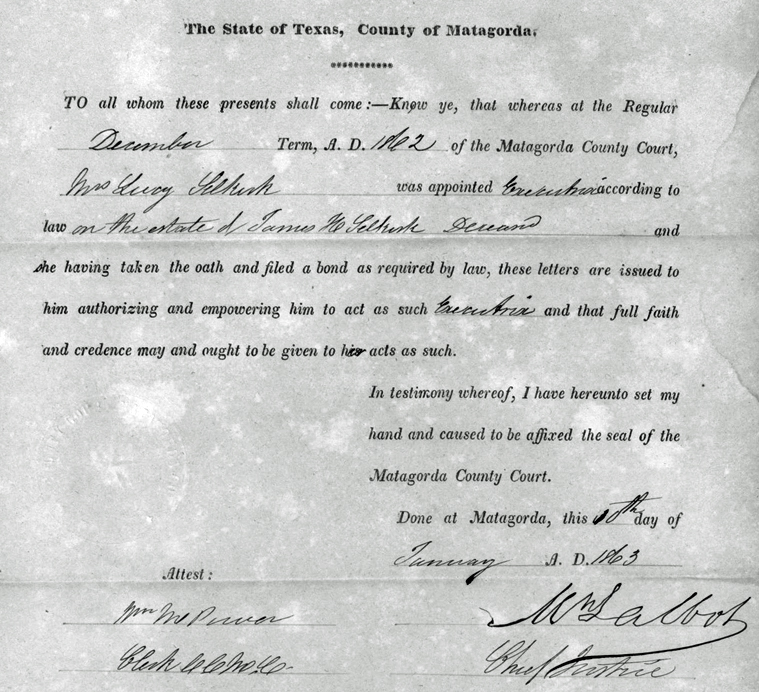 The State of Texas, County of Matagorda.
TO all whom these presents shall come:—Know ye, that whereas at the Regular
December Term, A. D. 1862 of the Matagorda County Court,
Mrs Lucy Selkirk was appointed Executrix according to
law on the estate of James H Selkirk Deceased and
she having taken the oath and filed a bond as required by law, these letters are issued to
him authorizing and empowering him to act as such Executrix and that full faith
and credence may and ought to be given to his acts as such.
In testimony whereof, I have hereunto set my
hand and caused to be affixed the seal of the
Matagorda County Court.
Done at Matagorda, this 10th day of
January A. D. 1863
Attest:
Wm
Clerk
Talbot
Chief Justice